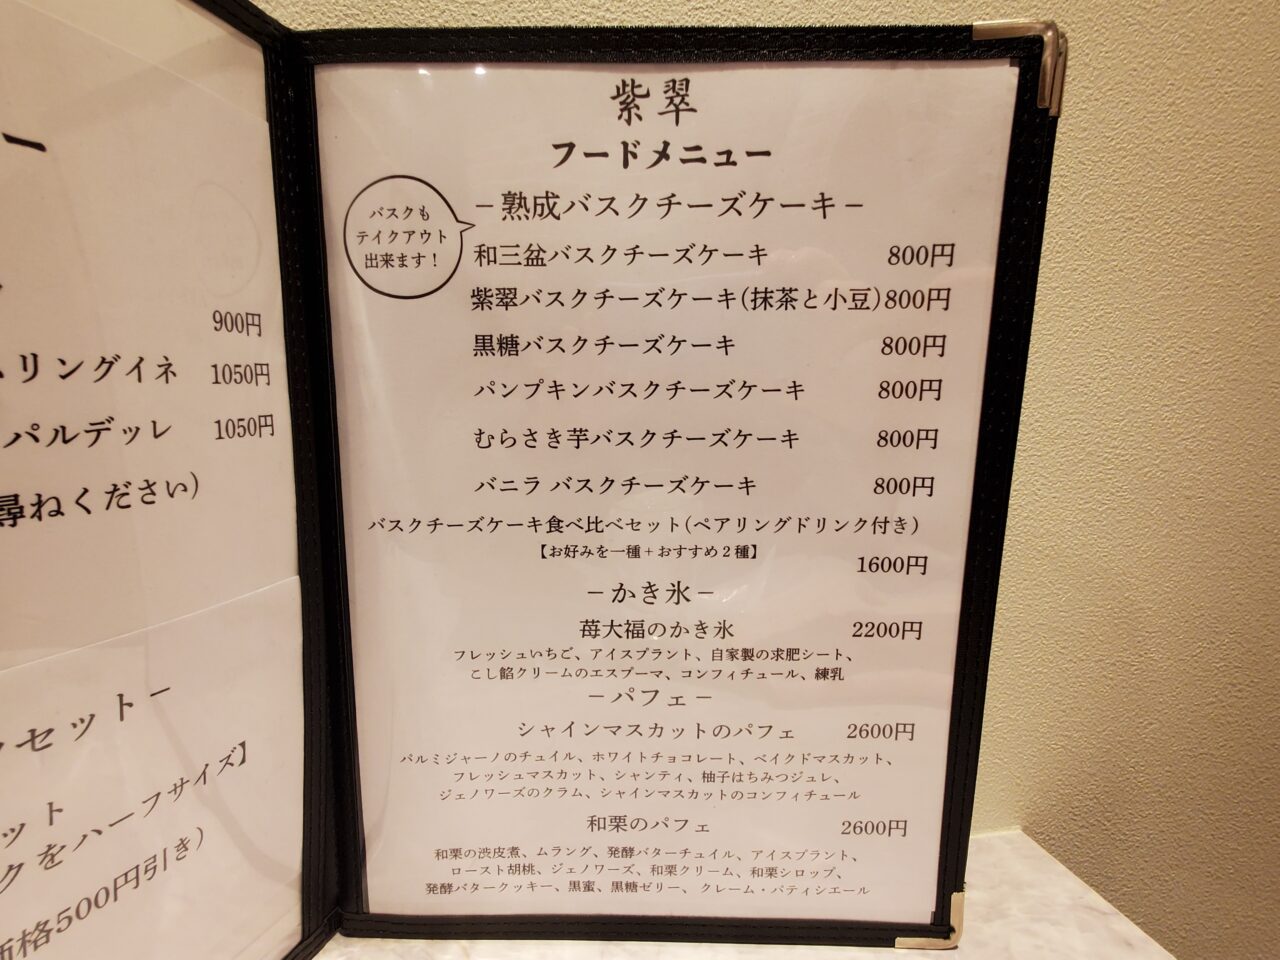 ー
900円
リングイネ 1050円
パルデッレ 1050円
尋ねください)
セット−
ット
クをハーフサイズ】
価格500円引き)
紫翠
フードメニュー
バスクも
テイクアウト
出来ます！
−熟成バスクチーズケーキ−
和三盆バスクチーズケーキ 800円
紫翠バスクチーズケーキ(抹茶と小豆)800円
黒糖バスクチーズケーキ 800円
パンプキンバスクチーズケーキ 800円
むらさき芋バスクチーズケーキ 800円
バニラ バスクチーズケーキ 800円
バスクチーズケーキ食べ比べセット(ペアリングドリンク付き)
【お好みを一種+おすすめ2種】
1600円
−かき氷−
苺大福のかき氷 2200円
フレッシュいちご、アイスプラント、自家製の求肥シート、
こし餡クリームのエスプーマ、コンフィチュール、練乳
−パフェ−
シャインマスカットのパフェ 2600円
パルミジャーノのチュイル、ホワイトチョコレート、ベイクドマスカット、
フレッシュマスカット、シャンティ、柚子はちみつジュレ、
ジェノワーズのクラム、シャインマスカットのコンフィチュール
和栗のパフェ 2600円
和栗の渋皮煮、ムラング、発酵バターチュイル、アイスプラント、
ロースト胡桃、ジェノワーズ、和栗クリーム、和栗シロップ、
発酵バタークッキー、黒蜜、黒糖ゼリー、クレーム・パティシエール